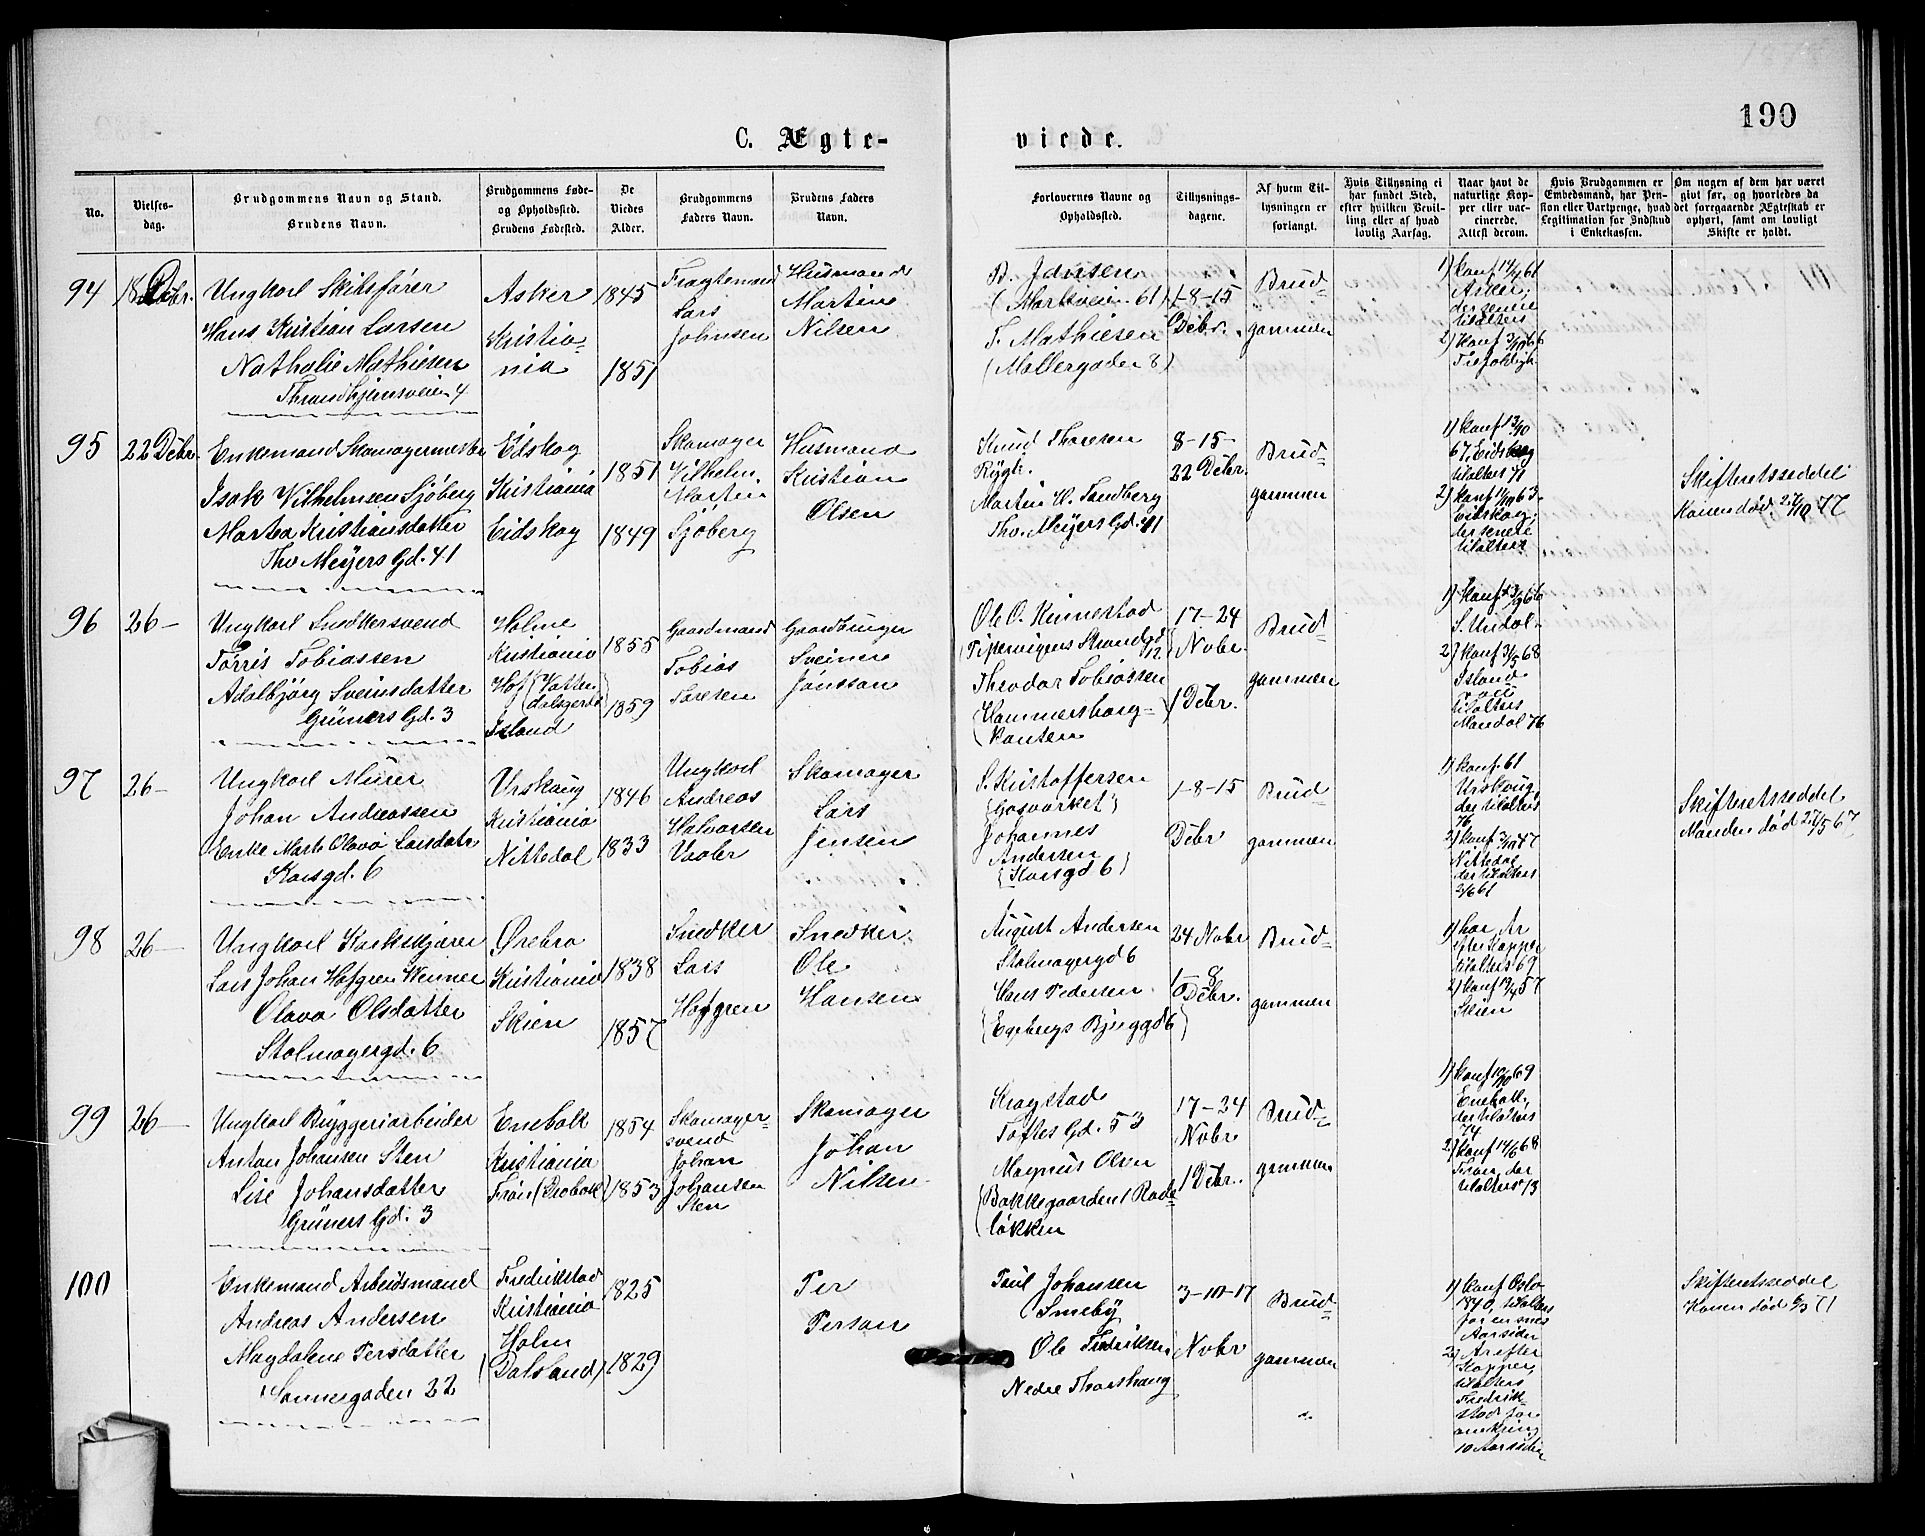 190
C. Ægte-
viede.
No.
Vielses-
dag.
Brudgommens Navn og Stand.
Brudens Navn.
Brudgommens Føde-
og Opholdssted.
Brudens Fødested.
De
Viedes
Alder.
Brudgommens
Faders Navn.
Brudens Faders
Navn.
Forlovernes Navne og
Opholdssted.
Tillysnings-
dagene.
Af hvem Til-
lysningen er
forlangt.
Hvis Tillysning ei
har fundet Sted,
efter hvilken Bevil-
ling eller af hvad
lovlig Aarsag.
Naar havt de
naturlige Kop-
per eller vac-
cinerede.
Attest derom.
Hvis Brudgommen er
Embedsmand, har Pen-
sion eller Vartpenge, hvad
Legitimation for Indskud
i Enkekassen.
Om nogen af dem har været
givt før, og hvorledes da
det foregaaende Ægteskab er
ophørt, samt om lovligt
Skifte er holdt.
94
18 Debr.
Ungkarl Skibsfører
Hans Kristian Larsen
Nathalie Mathiesen
Thrandhjemsveien 4
Asker
Kristia-
nia
1845
1851
Fragtemand
Lars
Johnsen
Husmand
Martin
Nilsen
B. Jansen
(Markveien 61)
T. Mathiesen
(Møllergaden 8)
1-8-15
Debr.
Brud-
gommen
1) konf 14/4 61
Asker;
der senere
tilalters
2) konf 3/10 66
Trefoldigh
95
22 Debr.
Enkemand Skomagermester
Isak Vilhelmsen Sjöberg
Martea Kristiansdatter
Tho Meyers Gd. 41
Eidskog
Kristiania
Eidskog
1851
1849
Skomager
Vilhelm
Martin
Sjöberg
Husmand
Kristian
Olsen
Knud Thoresen
Rygh.
Martin H. Sandberg
Tho. Meyers Gd. 41
8-15-
22 Debr.
Brud-
gommen
1) konf 13/10
67, Eidskog
tilalters 71
2) konf 11/10 63
Eidskog;
der senere
tilalters
Skifteretsseddel
Konen død 27/10 77
96
26-
Ungkarl Snedkersvend
Tørris Tobiassen
Adalbjørg Sveinsdatter
Grüners Gd. 3
Holme
Kristiania
Hof (Vatten
dalsgerde)
Island
1855
1859
Gaardmand
Tobias
Taresen
Gaardbruger
Sveinn
Jónsson
Ole O. Kinnestad
Pipervigens Strandgd
12.
Theodor Tobiassen
(Hammersborg-
kanten
17-24
Nobr.
1 Debr.
Brud-
gommen
S. Undal
2) konf 31/5 68
Island
tilalters
Mandal 76
97
26-
Ungkarl Murer
Johan Andreassen
Enke Marte Olava Larsdatr
Korsgd. 6
Urskoug
Kristiania
Nittedal
1846
1833
Ungkarl
Andreas
Halvorsen
Skomager
Lars
Jensen
S. Kristoffersen
(Gasværket)
Johannes
Andersen
(Korsgd 6)
1-8-15
Debr
Brud-
gommen
1) konf. 61
Urskoug,
der tilalters
76
Nittedal,
der tilalters
2/6 61
Skifteretsseddel
Manden død 27/5 67
98
26-
Ungkarl Korkskjærer
Lars Johan Hofgren Wenner
Olava Olsdatter
Stolmagergd. 6
Ørebro
Kristiania
Skien
1838
1857
Snedker
Lars
Hofgren
Snedker
Ole
Hansen
August Andersen
Stolmagergd 6
Hans Pedersen
(Egebergs Bjerggd 6)
24 Nobr
1-8
Debr.
Brud-
gommen
1) har Ar
efter Kopper
tilalters 69
2) konf 19/4 57
Skien
99
26-
Ungkarl Bryggeriarbeider
Anton Johansen Sten
Lise Johansdatter
Grüners Gd. 3
Enebak
Kristiania
Frön (Drobak)
1854
1853
Skomager-
svend
Johan
Johansen
Sten
Skomager
Johan
Nilsen
Kragstad
Toftes Gd. 53
Magnus Olsen
(Bakkegaarden, Rode-
løkken
17-24
Nobr
1 Debr.
Brud-
gommen
1) konf 10/10 69
Enebak,
der tilalters
74
2) konf 14/6 68
Fron, der
tilalters 73
100
Enkemand Arbeidsmand
Andreas Andersen
Magdalene Persdatter
Sannergaden 22
Fredrikstad
Kristiania
Holm
(Dalsland)
1825
1829
Per
Person
Paul Johansen
Smeby
Ole Fredriksen
Nedre Thorshaug
3-10-17
Nobr
Brud-
gommen
1) konf Oslo
1840, tilalters
for en snes
Aar siden
2) Ar efter
Kopper,
tilalters
Fredrik-
stad for
omkring
10 Aar siden
Skifteretsseddel
Konen død 6/3 71